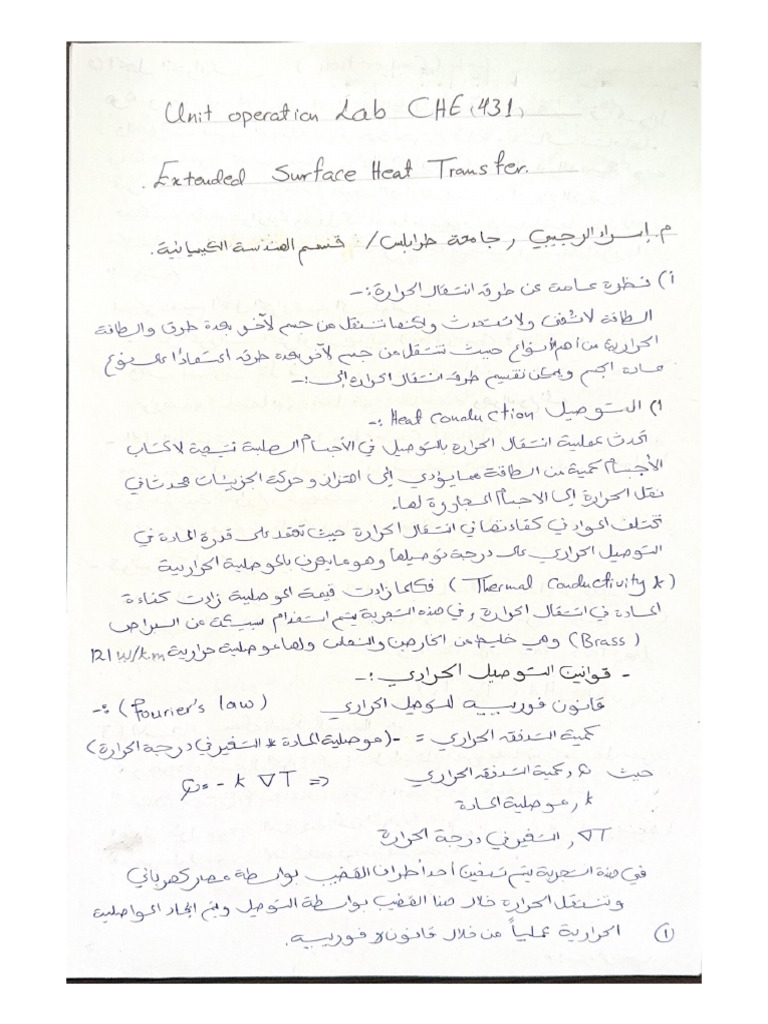 Unit operation Lab CHE(431)
Extended Surface Heat Transfer.
م. إسراء الرجيبي , جامعة طرابلس / قسم الهندسة الكيميائية.
أ) نظرة عامة عن طرق انتقال الحرارة :-
الطاقة لا تفنى ولا تستحدث ولكنها تنتقل من جسم لآخر بعدة طرق والطاقة
الحرارية من أهم الأنواع حيث تنتقل من جسم لآخر بعدة طرق اعتمادًا على نوع
مادة الجسم ويمكن تقسيم طرق انتقال الحرارة إلى :-
1) التوصيل Heat conduction :-
تحدث عملية انتقال الحرارة بالتوصيل في الأجسام الصلبة نتيجة لاكتساب
الأجسام كمية من الطاقة مما يؤدي إلى اهتزاز وحركة الجزيئات محدثة في
نقل الحرارة إلى الأجسام المجاورة لها.
تختلف المواد في كفاءتها في انتقال الحرارة حيث تعتمد على قدرة المادة في
التوصيل الحراري على درجة توصيلها وهو ما يعرف بالموصلية الحرارية
(Thermal conductivity k) فكلما زادت قيمة الموصلية زادت كفاءة
المادة في انتقال الحرارة , في هذه التجربة يتم استخدام سبيكة من البراص
(Brass) وهي خليط من الخارصين والنحاس ولها موصلية حرارية 121 W/k.m
- قوانين التوصيل الحراري :-
قانون فورييه للتوصيل الحراري (Fourier's law) :-
كمية التدفق الحراري = -(موصلية المادة * التغير في درجة الحرارة)
حيث Q , كمية التدفق الحراري <= Q = - k ∇T
k , موصلية المادة
∇T , التغير في درجة الحرارة
في هذه التجربة يتم تسخين أحد أطراف القضيب بواسطة مصدر كهربائي
وتنتقل الحرارة خلال هذا القضيب بواسطة التوصيل ويتم ايجاد المواصلية
الحرارية عملياً من خلال قانون فورييه.
1